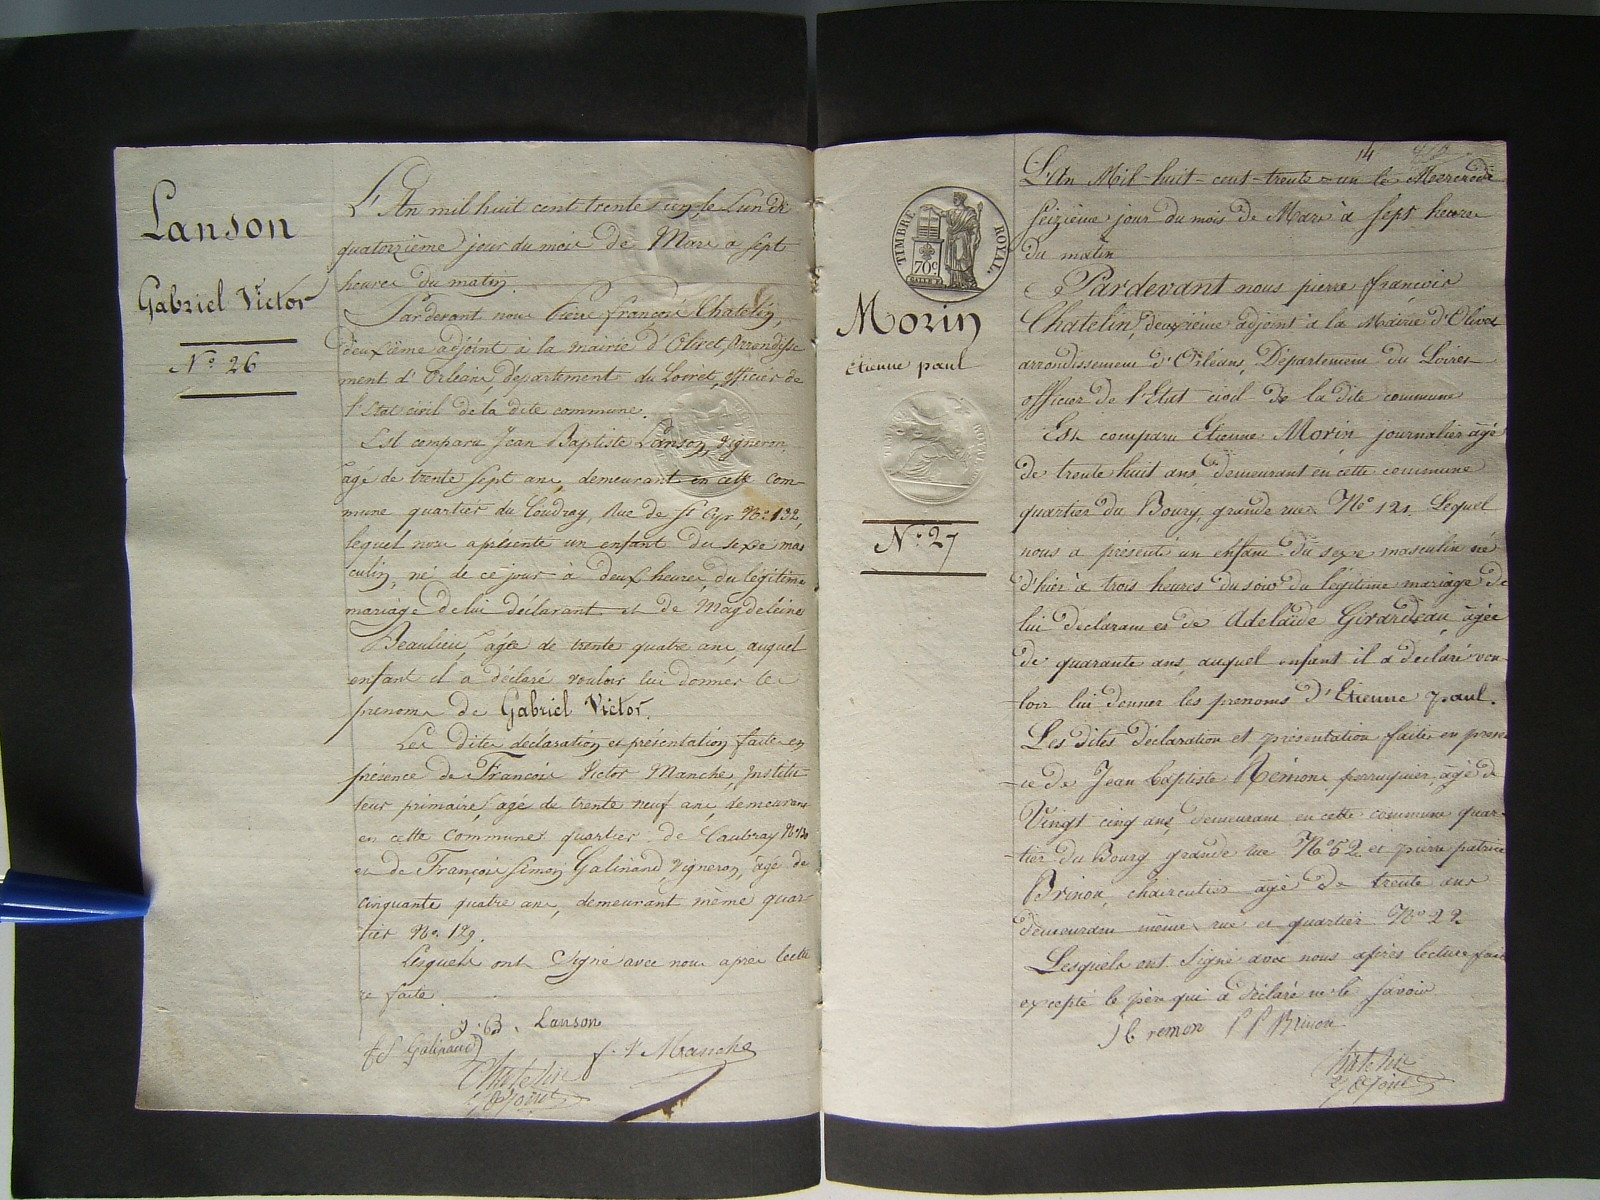 Lanson
Gabriel Victor
No. 26
L'An mil huit cent trente un, le Lundi
quatorzième jour du mois de Mars a sept
heures du matin.
Pardevant nous Pierre françois Chatelin,
deuxième adjoint à la mairie d'Olivet, Arrondisse
ment d'Orléans, Département du Loiret, officier de
l'Etat civil de la dite commune.
Est comparu Jean Baptiste Lanson, vigneron,
agé de trente sept ans, demeurant en cette com-
mune quartier du Coudray, Rue de St Cyr No. 132,
lequel nous a présenté un enfant du sexe mas
culin, né de ce jour à deux heures, du légitime
mariage de lui déclarant et de Magdeleine
Beaulieu, agée de trente quatre ans, auquel
enfant il a déclaré vouloir lui donner les
prenoms de Gabriel Victor.
Les dites déclaration et présentation faites en
présence de François Victor Manche, Institu
teur primaire, agé de trente neuf ans, demeurant
en cette Commune quartier de
et de François Simon Galinand, vigneron, agé de
cinquante quatre ans, demeurant même quar
tier No. 129.
Lesquels ont Signé avec nous après lectu
re faite.
J. B. Lanson
f S Galinaud f. V Manche
Chatelin
adjoint
14
TIMBRE ROYAL.
70c
Morin
Etienne paul
No. 27
L'An Mil-huit-cent-trente-un le Mercredi
Seizième jour du mois de Mars à Sept heures
du matin
Pardevant nous pierre françois
Chatelin, deuxième adjoint à la Mairie d'Olivet
arrondissement d'Orléans, Département du Loiret
officier de l'Etat civil de la dite commune
Est comparu Etienne Morin journalier agé
de trente huit ans, demeurant en cette commune
quartier du Bourg, grande rue No 121. Lequel
nous a présenté un enfant du sexe masculin né
d'hier à trois heures du soir du légitime mariage de
lui déclarant et de Adelaïde Girardeau, agée
de quarante ans, auquel enfant il a déclaré vou-
loir lui donner les prenoms d'Etienne paul.
Les dites déclaration et présentation faites en presen
ce de Jean baptiste Rémon, perruquier, agé de
Vingt cinq ans, demeurant en cette commune quar-
tier du Bourg grande rue No 52 et pierre patrice
Brinon, chaircutier agé de trente ans
demeurant même rue et quartier No 22
Lesquels ont Signé avec nous après lecture faite
excepté le père qui a déclaré ne le Savoir
J B remon P P Brinon
Chatelin
adjoint